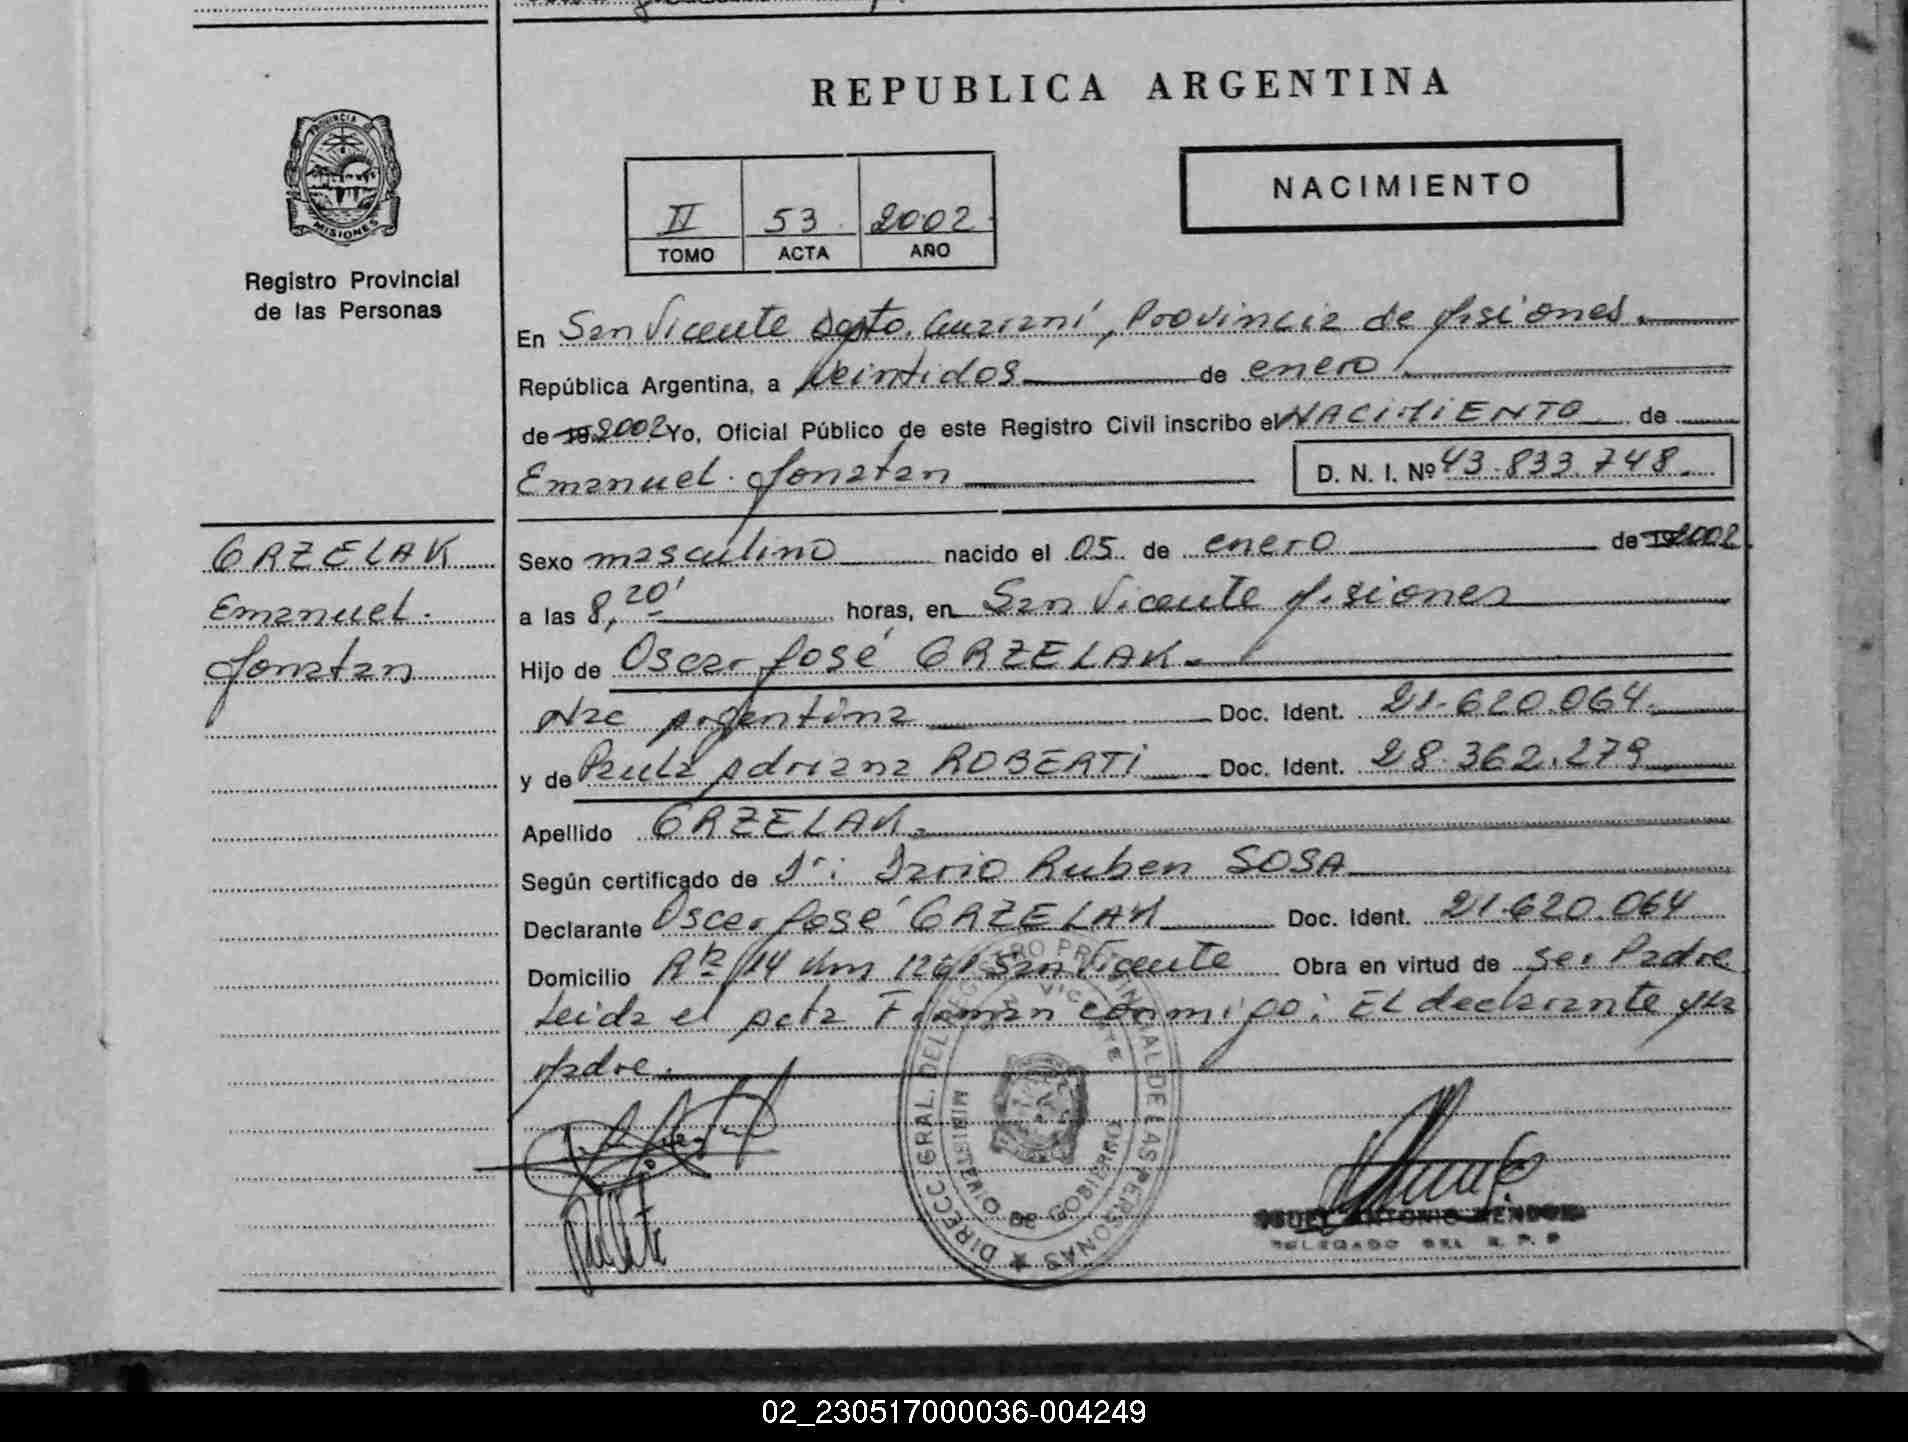 REPUBLICA ARGENTINA
PROVINCIA DE
MISIONES
Registro Provincial
de las Personas
NACIMIENTO
II 53 2002
TOMO ACTA AÑO
En San Vicente Dpto. Guaraní, Provincia de Misiones.
República Argentina, a Veintidos de enero
de 19 2002 Yo, Oficial Público de este Registro Civil inscribo el NACIMIENTO de
Emanuel Jonatan D. N. I. Nº 43.833.748.
GRZELAK
Emanuel.
Jonatan
Sexo masculino nacido el 05 de enero de 19 2002.
a las 8,20' horas, en San Vicente Misiones
Hijo de Oscar José GRZELAK.
Nac Argentina Doc. Ident. 21.620.064.
y de Paula Adriana ROBERTI Doc. Ident. 28.362.279
Apellido GRZELAK.
Según certificado de Dr: Dario Ruben SOSA
Declarante Oscar José GRZELAK Doc. Ident. 21.620.064
Domicilio Rta 14 Km 1261 San Vicente Obra en virtud de ser Padre
Leida el acta Firman conmigo: El declarante y la
Madre.
DIRECC GRAL. DEL REGISTRO PROVINCIAL DE LAS PERSONAS
MINISTERIO DE GOBIERNO
ANTONIO
DELEGADO DEL R. P. P
02_230517000036-004249